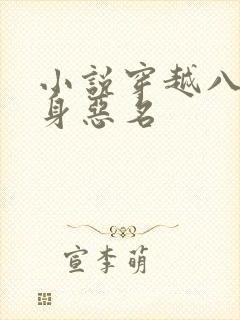 小説穿越八
身惡名
宣李萌